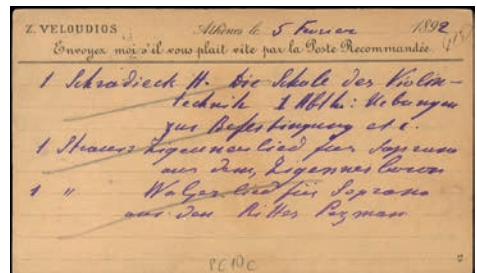 Z. VELOUDIOS Athènes le 5 Fevrier 1892
Envoyez moi s'il vous plait vite par la Poste Recommandée
1 Schradieck H. Die Schule der Violin-
technik I Abthl: Uebungen
zur Befestingung etc.
1 Strauss Zigeunerlied für Soprano
aus dem, Zigeunerbaron
1 " Walzerlied für Soprano
aus den Ritter Pazman
PC10c